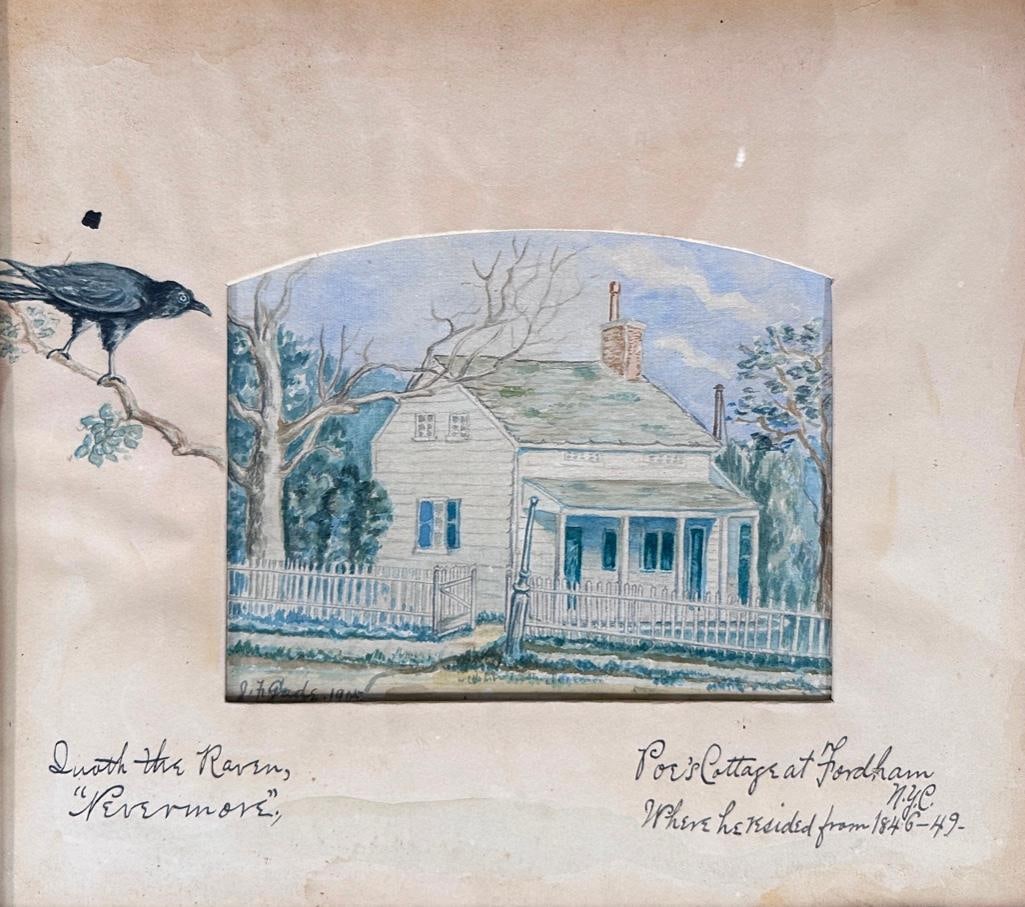 Quoth the Raven,
"Nevermore".,
Poe's Cottage at Fordham
N.Y.C.
Where he resided from 1846-49-